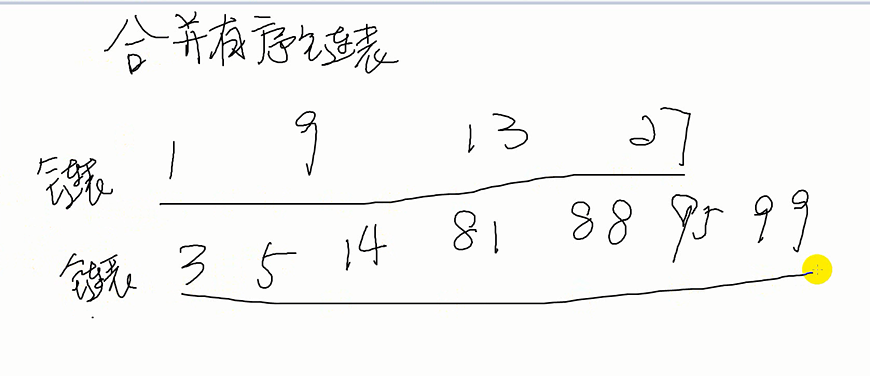 合并有序链表
链表 1 9 13 27
链表 3 5 14 81 88 95 99